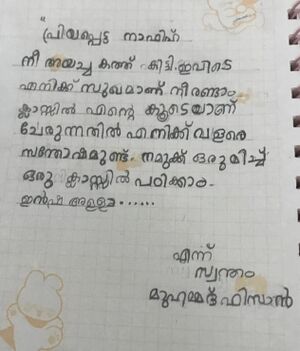 "പ്രിയപ്പെട്ട നാഫിഹ്
നീ അയച്ച കത്ത് കിട്ടി. ഇവിടെ
എനിക്ക് സുഖമാണ് നീ രണ്ടാം
ക്ലാസ്സിൽ എന്റെ കൂടെയാണ്
ചേരുന്നതിൽ എനിക്ക് വളരെ
സന്തോഷമുണ്ട്. നമുക്ക് ഒരുമിച്ച്
ഒരു ക്ലാസ്സിൽ പഠിക്കാം.
ഇൻഷ അള്ളാ ......
എന്ന്
സ്വന്തം
മുഹമ്മദ് ഫിസാൻ